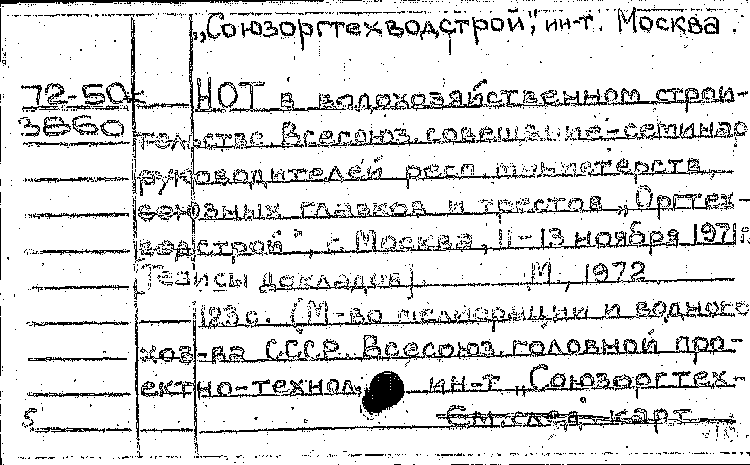 „Союзоргтехводстрой", ин-т. Москва.
72-50к НОТ в водохозяйственном строи-
3860 тельстве. Всесоюз. совещание-семинар
руководителей респ. министерств,
союзных главков и трестов „Оргтех-
водстрой", г. Москва, 11-13 ноября 1971 г.
[Тезисы докладов]. М., 1972
123 с. (М-во мелиорации и водного
хоз-ва СССР. Всесоюз. головной про-
ектно-технол. ин-т „Союзоргтех-
5 См. след. карт.